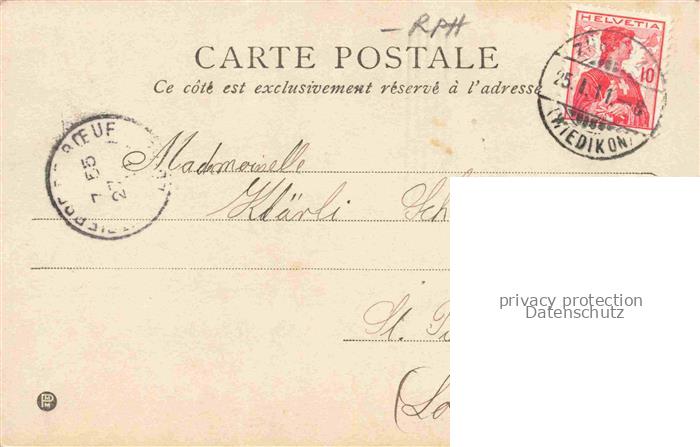 - RPH
CARTE POSTALE
Ce côté est exclusivement réservé à l'adresse
HELVETIA
10
25.I.11.-8
(WIEDIKON)
BŒUF
7 55
27
Mademoiselle
Klärli Sch
privacy protection
Datenschutz
St.
(Lo